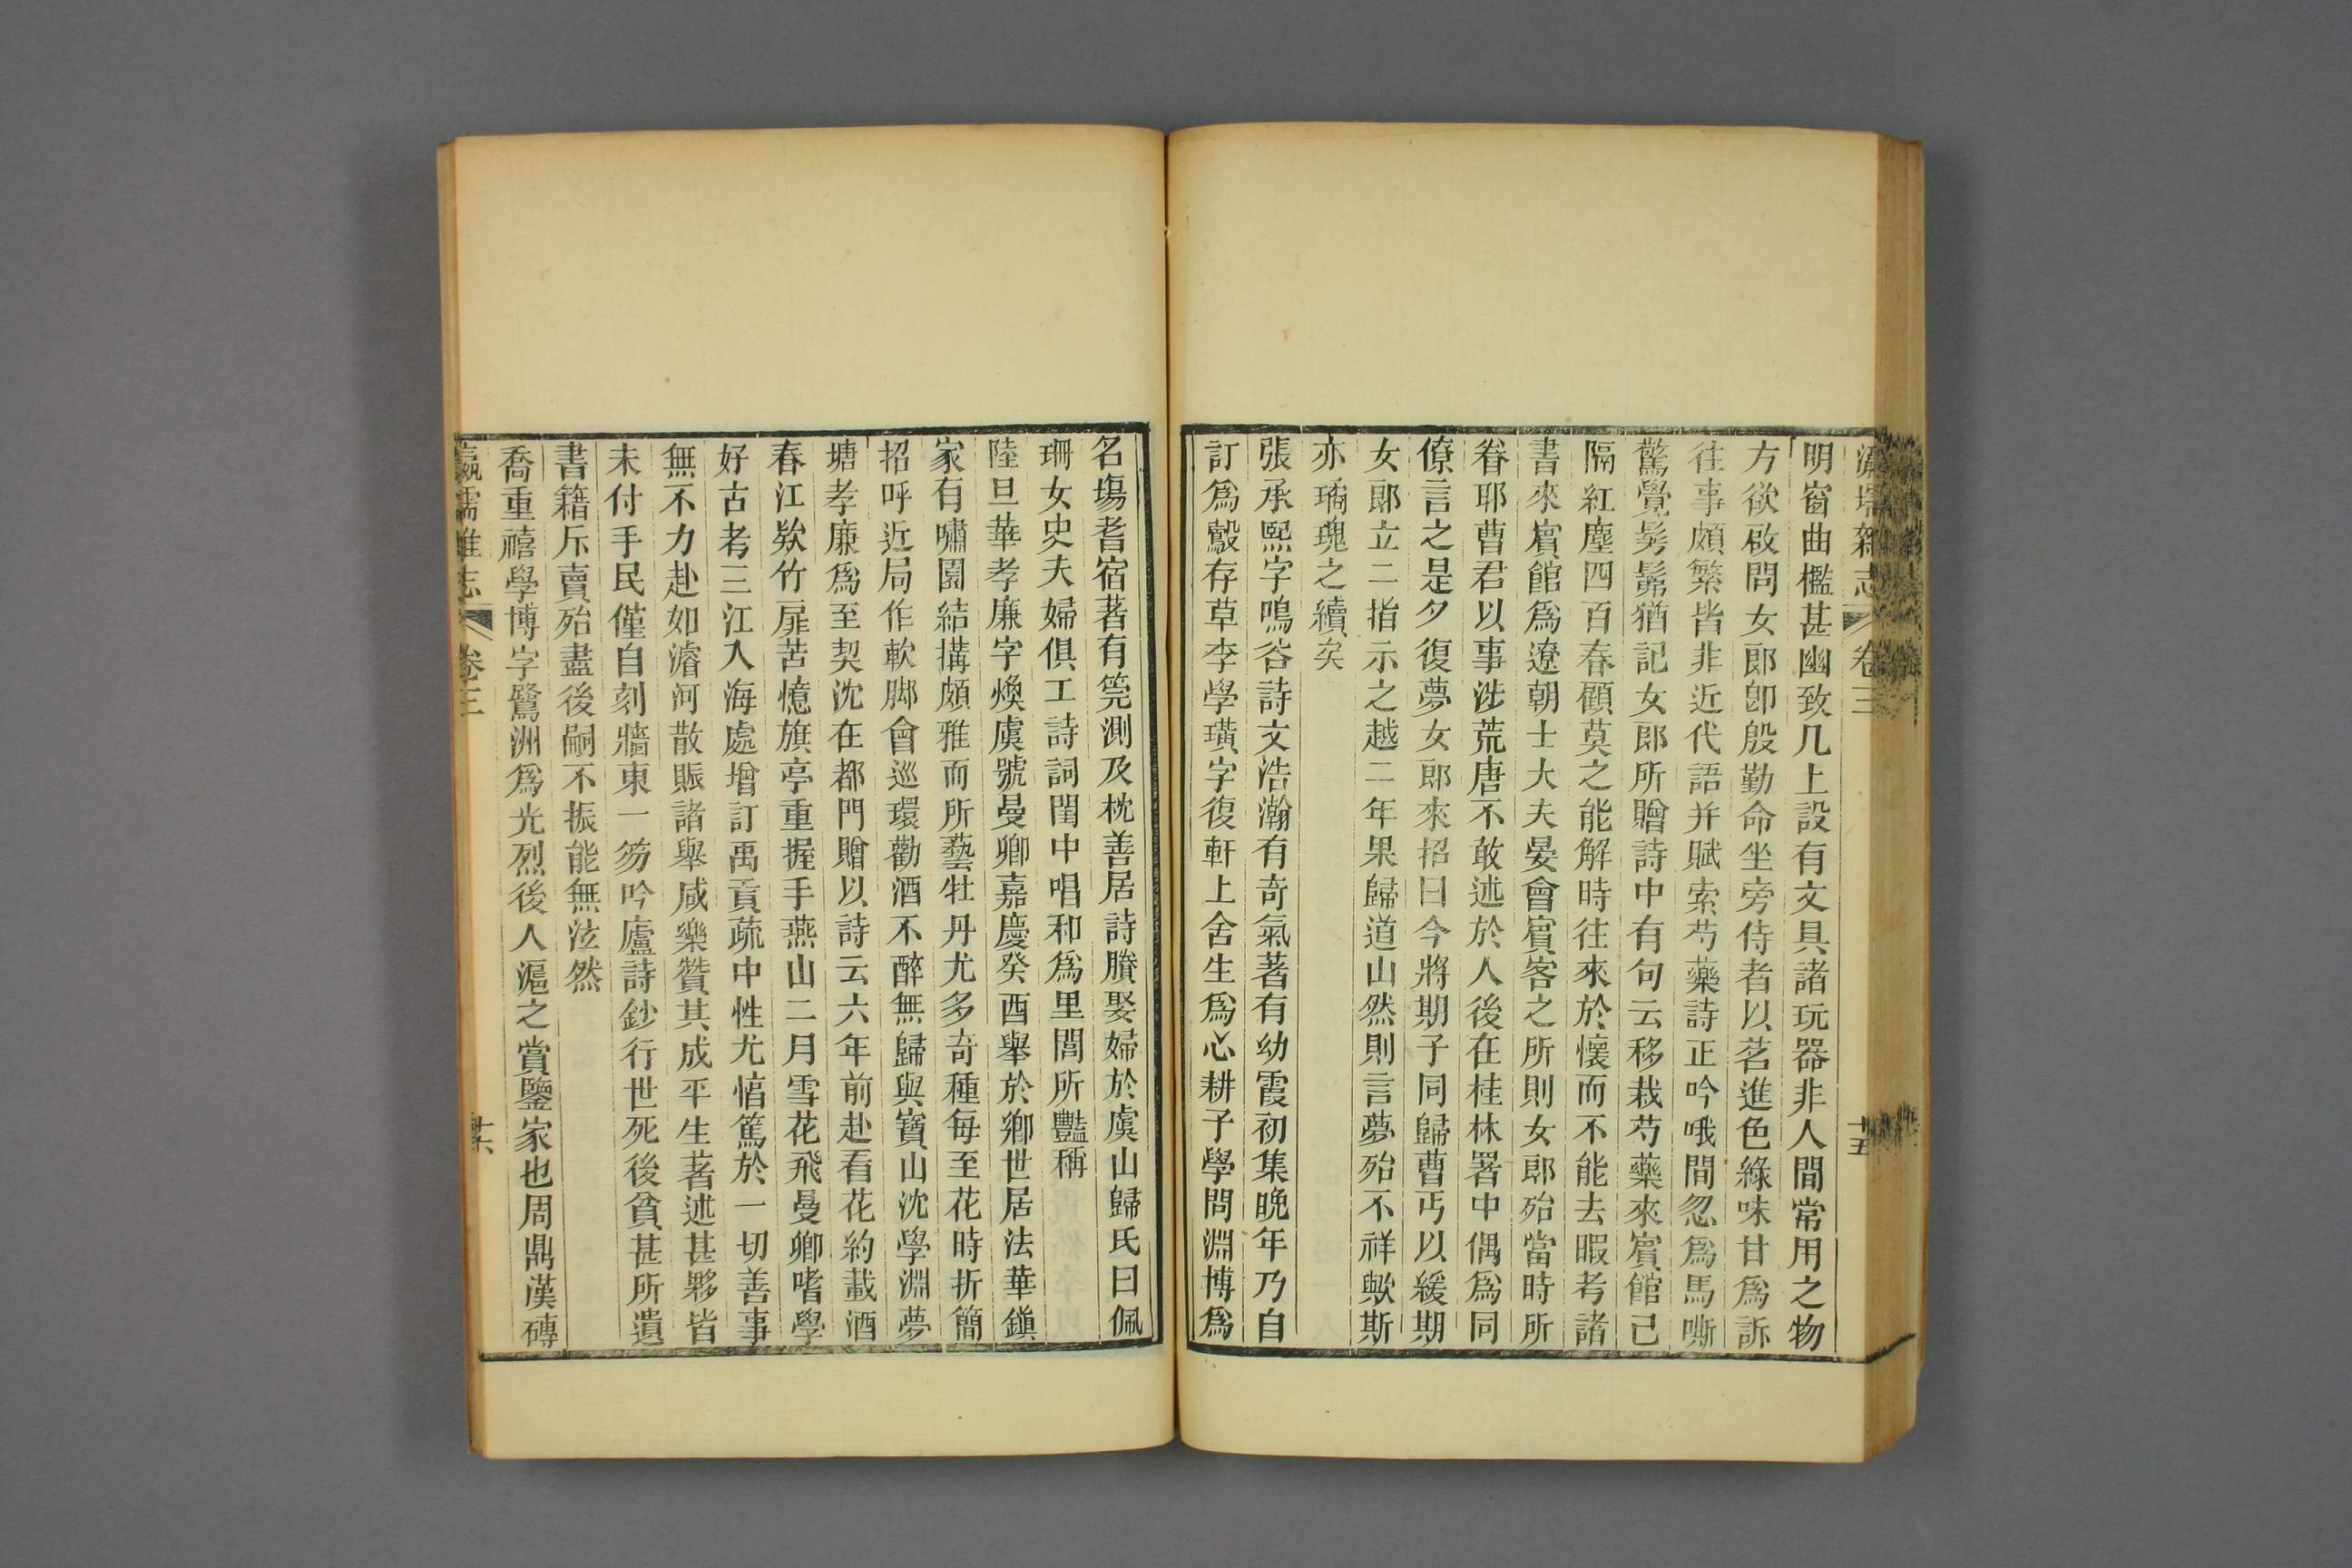 瀛壖雜志 卷三 十五
明窗曲檻甚幽致几上設有文具諸玩器非人間常用之物
方欲啟問女郎卽殷勤命坐旁侍者以茗進色綠味甘爲訴
往事頗繁皆非近代語幷賦索芍藥詩正吟哦間忽爲馬嘶
驚覺髣髴猶記女郎所贈詩中有句云移栽芍藥來賓館已
隔紅塵四百春顧莫之能解時往來於懷而不能去暇考諸
書來賓館爲遼朝士大夫晏會賓客之所則女郎殆當時所
眷耶曹君以事涉荒唐不敢述於人後在桂林署中偶爲同
僚言之是夕復夢女郎來招曰今將期子同歸曹丐以緩期
女郎立二指示之越二年果歸道山然則言夢殆不祥歟斯
亦璚瑰之續矣
張承熙字鳴谷詩文浩瀚有奇氣著有幼霞初集晚年乃自
訂爲鷇存草李學璜字復軒上舍生爲心耕子學問淵博爲
名塲耆宿著有筦測及枕善居詩賸娶婦於虞山歸氏曰佩
珊女史夫婦俱工詩詞閨中唱和爲里閭所豔稱
陸旦華孝廉字煥虞號曼卿嘉慶癸酉舉於鄉世居法華鎮
家有嘯園結搆頗雅而所藝牡丹尤多奇種每至花時折簡
招呼近局作軟脚會巡環勸酒不醉無歸與寶山沈學淵夢
塘孝廉爲至契沈在都門贈以詩云六年前赴看花約載酒
春江欵竹扉苦憶旗亭重握手燕山二月雪花飛曼卿嗜學
好古考三江入海處增訂禹貢疏中性尤悃篤於一切善事
無不力赴如濬河散賑諸舉咸樂贊其成平生著述甚夥皆
未付手民僅自刻牆東一笏吟廬詩鈔行世死後貧甚所遺
書籍斥賣殆盡後嗣不振能無泫然
喬重禧學博字鷺洲爲光烈後人滬之賞鑒家也周鼎漢磚
瀛壖雜志 卷三 十六